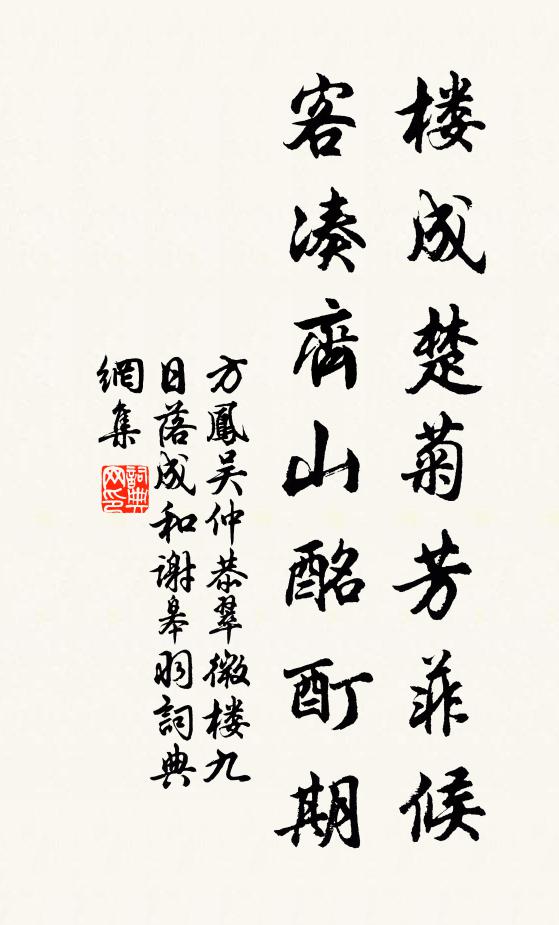 楼成楚菊芳菲候
客凑齊山酩酊期
方鳳吴仲恭翠微楼九
日落成和谢皋羽詞典
網集
詞典网印